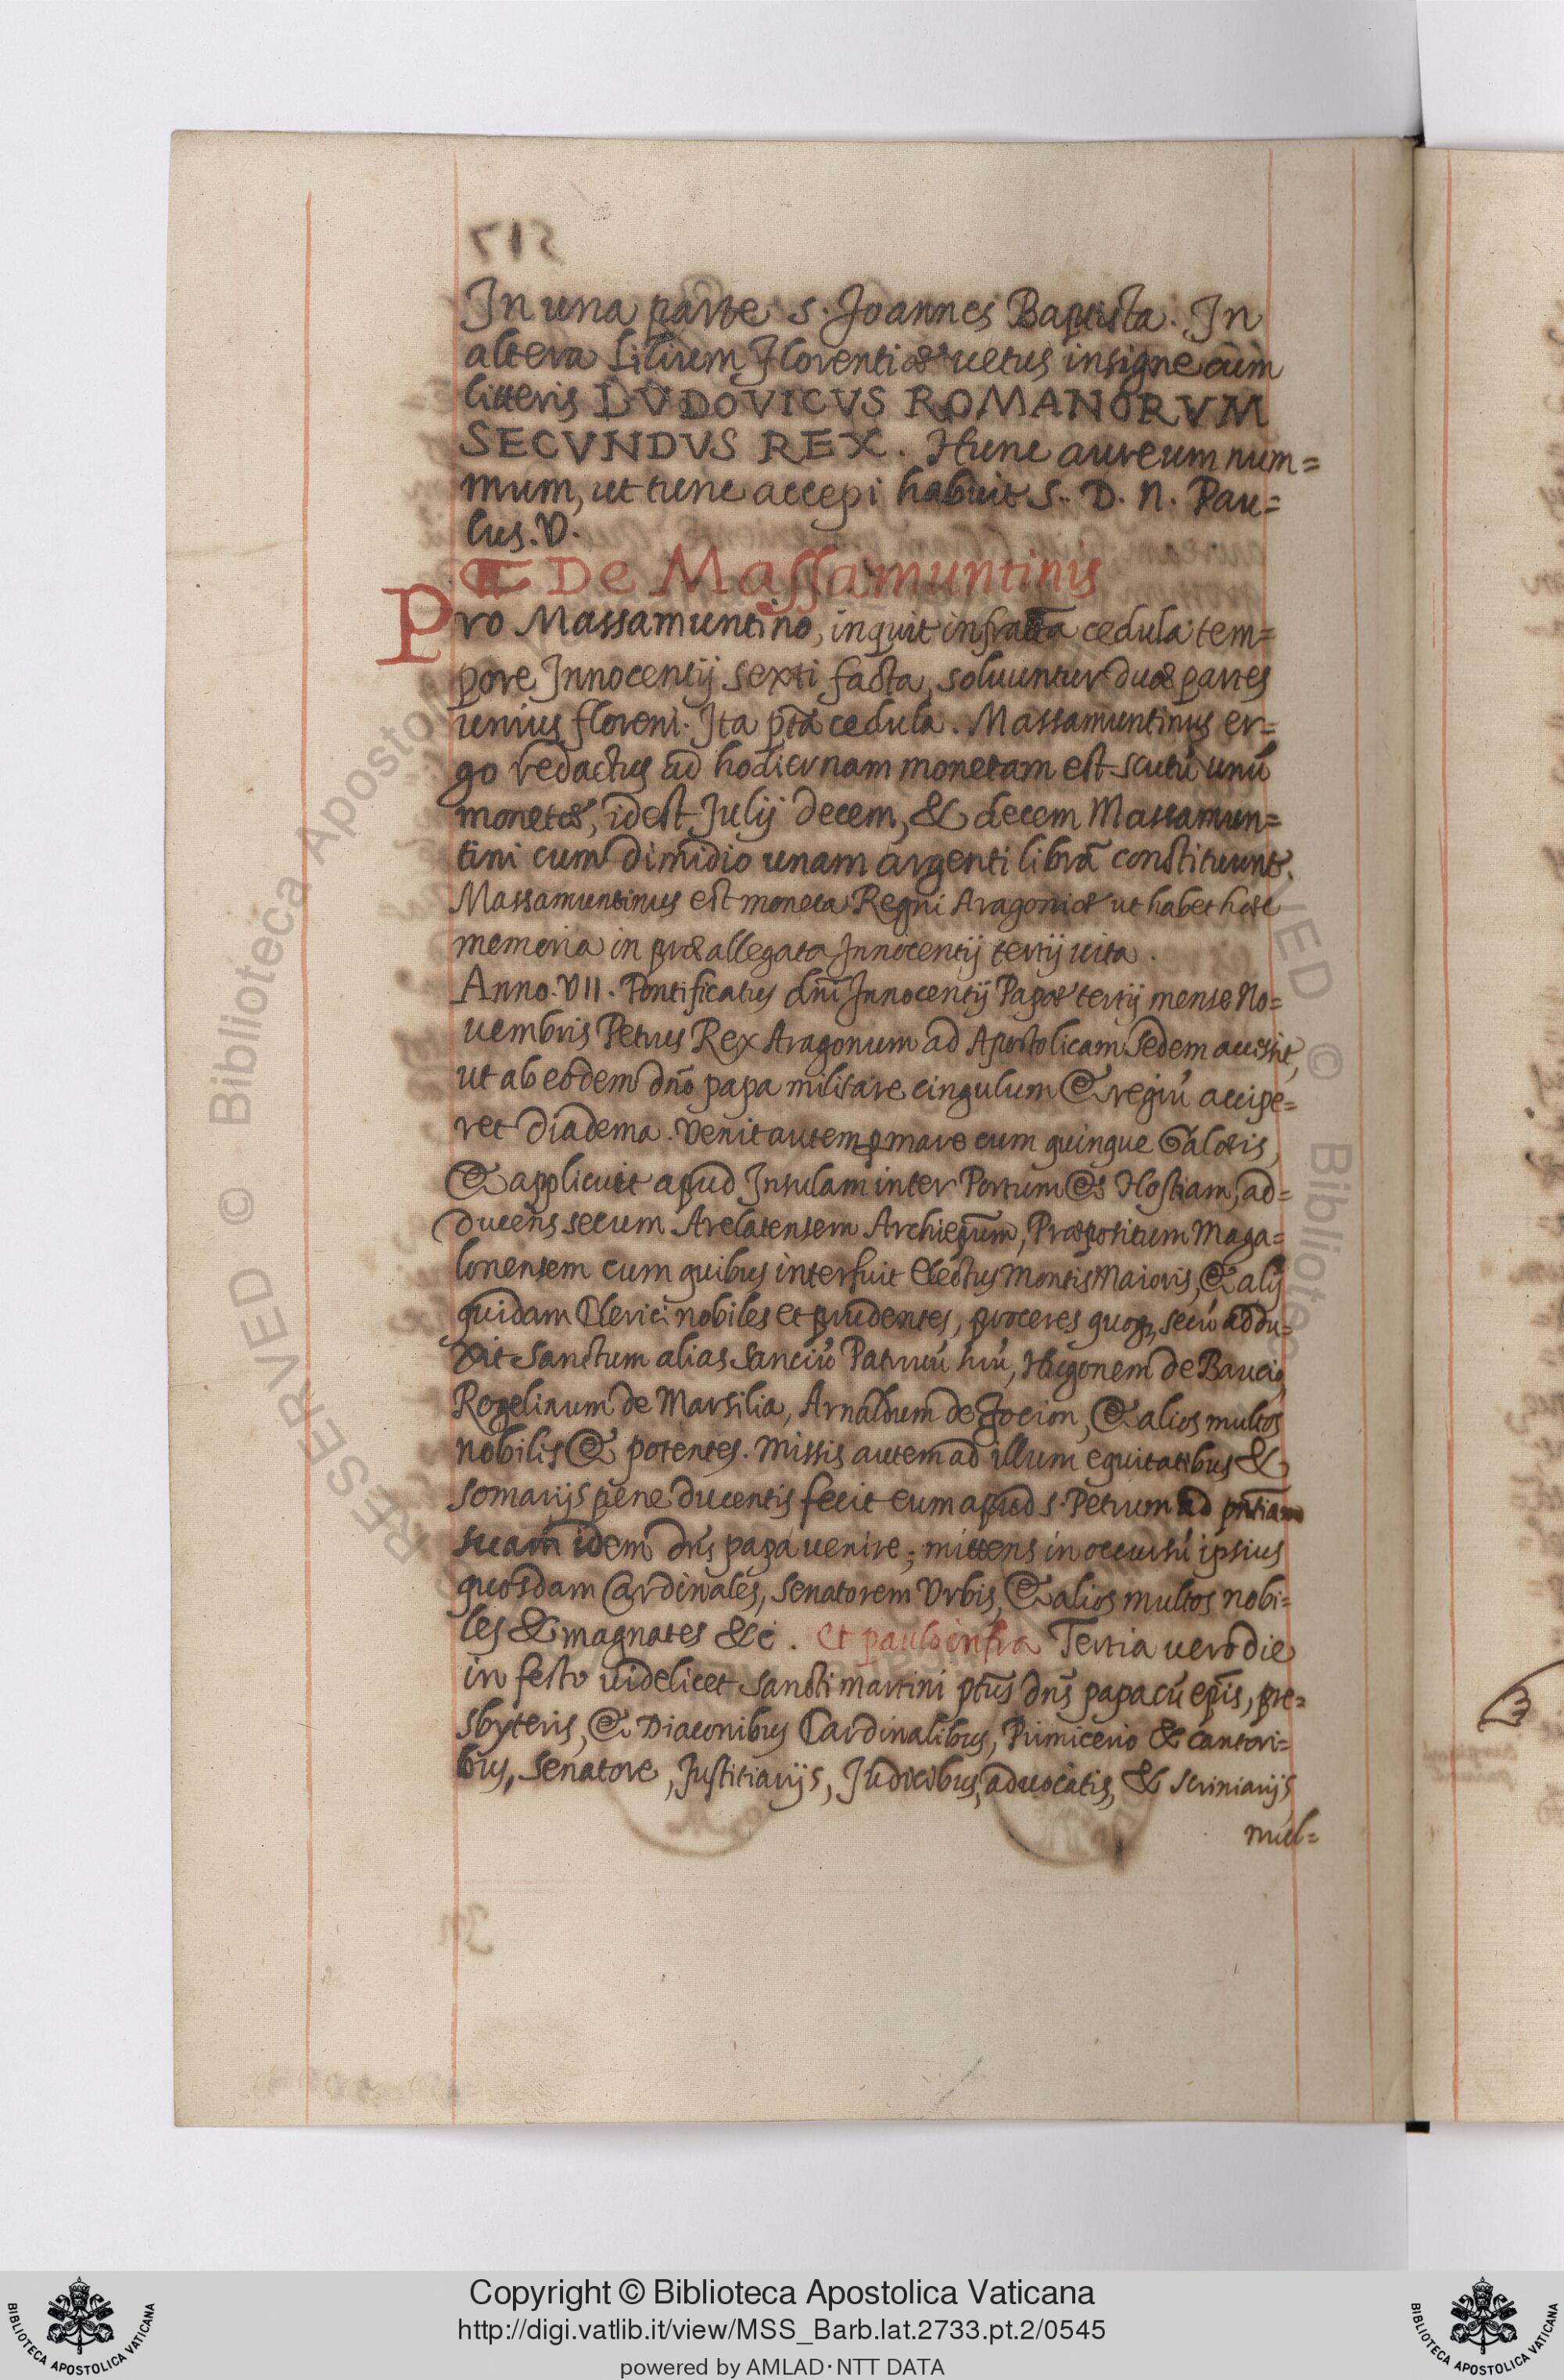 In una parte s. Joannes Baptista. In
altera Lilium Florentiæ uetus insigne cum
litteris LVDOVICVS ROMANORVM
SECVNDVS REX. Hunc aureum num=
mum, ut tunc accepi habuit S. D. N. Pau=
lus. V.
De Massamuntinis
Pro Massamuntino, inquit infratta cedula tem=
pore Innocentij sexti facta, soluuntur duæ partes
unius floreni. Ita pta cedula. Massamuntinus er=
go redactus ad hodiernam monetam est scutũ unũ
monetæ, idest Julij decem, & decem Massamun=
tini cum dimidio unam argenti librã constituunt.
Massamuntinus est moneta Regni Aragoniæ ut habet hæc
memoria in præallegata Innocentij tertij uita.
Anno. VII. Pontificatus dñi Innocentij Papæ tertij mense No=
uembris Petrus Rex Aragonum ad Apostolicam Sedem accessit,
ut ab eodem dño papa militare cingulum & regiũ accipe=
ret diadema. Venit autem p mare cum quinque Galeis,
& applicuit apud Insulam inter Portum & Hostiam, ad=
ducens secum Arelatensem Archiepũm, Præpositum Maga=
lonensem cum quibus interfuit Electus Montis Maioris, & alij
quidam Clerici nobiles et prudentes, proceres quoq, secũ addu=
xit Sanctum alias Sanciũ Patruũ suũ, Hugonem de Baucio,
Rogelinum de Marsilia, Arnaldum de Focion, & alios multos
nobilis & potentes. Missis autem ad illum equitatibus &
somarijs pene ducentis fecit eum apud s. Petrum ad pñtiam
suam idem dñs papa uenire; mittens in occursũ ipsius
quosdam Cardinales, Senatorem Vrbis, & alios multos nobi=
les & magnates &c. Et paulo infra Tertia uero die
in festo uidelicet Sancti Martini ptus dñs papa cũ epis, pre=
sbyteris, & Diaconibus Cardinalibus, Primicerio & cantori=
bus, Senatore, Justitiarijs, Judicibus, aduocatis, & scriniarijs
mul=
© Biblioteca Apostolica
RESERVED
RESERVED © Biblioteca
Copyright © Biblioteca Apostolica Vaticana
http://digi.vatlib.it/view/MSS_Barb.lat.2733.pt.2/0545
powered by AMLAD·NTT DATA
BIBLIOTECA APOSTOLICA VATICANA
BIBLIOTECA APOSTOLICA VATICANA